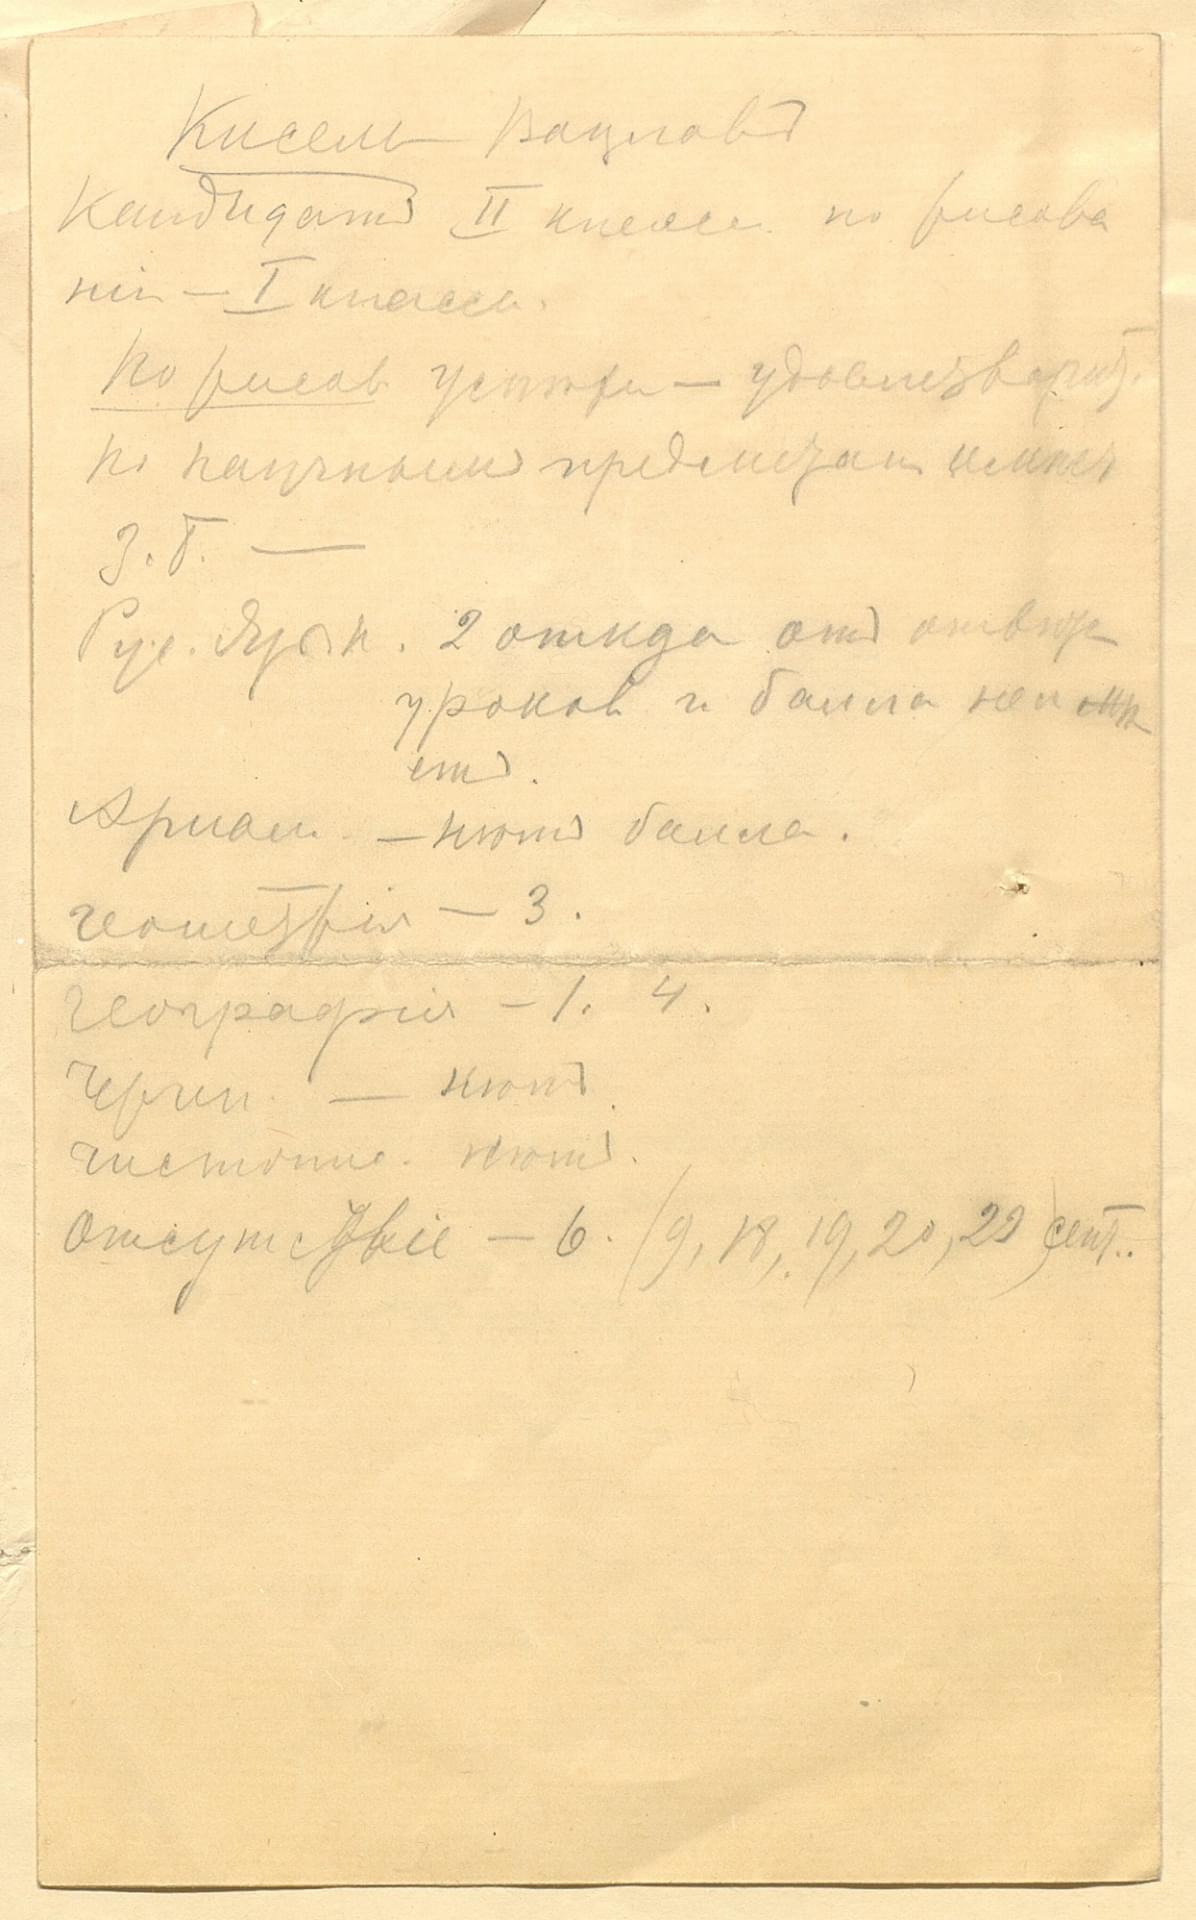 Кисель Вацлавъ
Кандидатъ II класса по рисова
нію – I класса.
По рисов успѣхи – удовлетворит.
По научнымъ предметамъ имѣетъ
З. Б. —
Рус. Язык. 2 отказа отъ отвѣта
уроков и балла не имѣ
етъ.
Ариѳм. – нѣтъ балла.
Геометрія – 3.
Географія – 1. 4.
Черчен. — нѣтъ
Чистопис. нѣтъ.
Отсутствіе – 6. (9, 18, 19, 20, 22) сент..